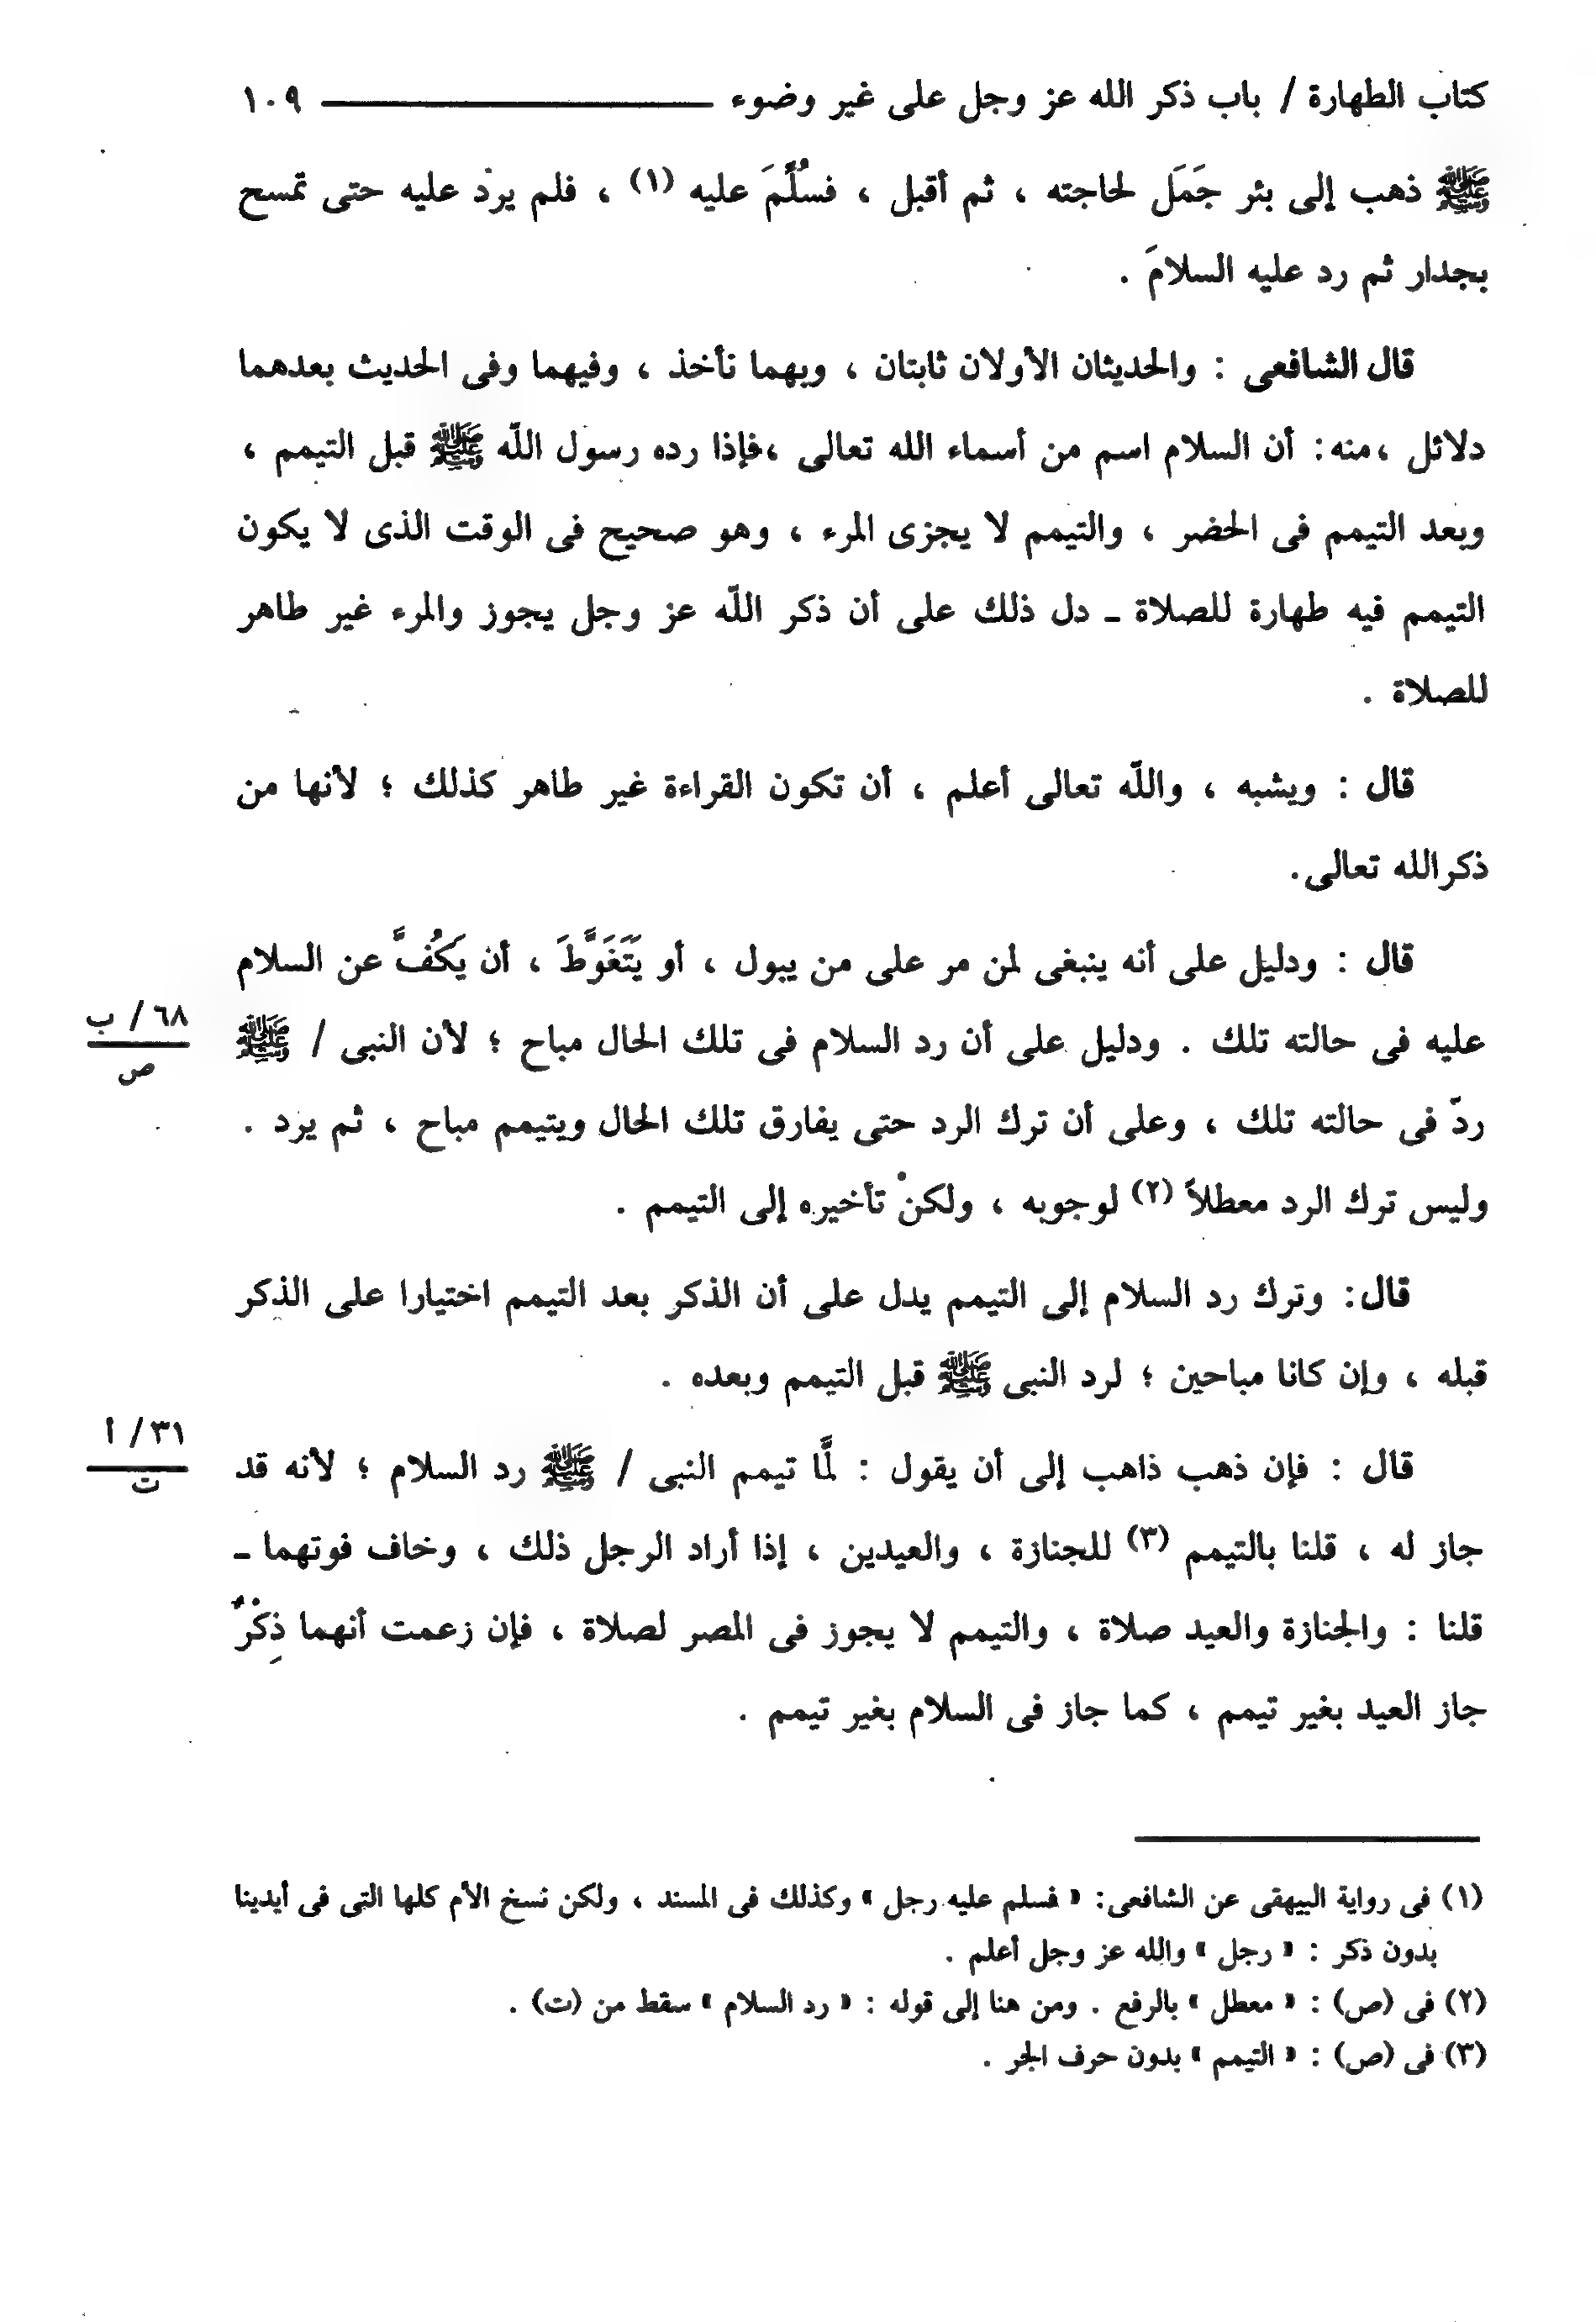 كتاب الطهارة / باب ذكر الله عز وجل على غير وضوء ـــــــــ ١٠٩
ﷺ ذهب إلى بئر جَمَل لحاجته ، ثم أقبل ، فسُلِّمَ عليه (١) ، فلم يردْ عليه حتى تمسح
بجدار ثم رد عليه السلامَ .
قال الشافعى : والحديثان الأولان ثابتان ، وبهما نأخذ ، وفيهما وفى الحديث بعدهما
دلائل ،منه: أن السلام اسم من أسماء الله تعالى ،فإذا رده رسول اللّه ﷺ قبل التيمم ،
وبعد التيمم فى الحضر ، والتيمم لا يجزى المرء ، وهو صحيح فى الوقت الذى لا يكون
التيمم فيه طهارة للصلاة ـ دل ذلك على أن ذكر اللّه عز وجل يجوز والمرء غير طاهر
للصلاة .
قال : ويشبه ، واللّه تعالى أعلم ، أن تكون القراءة غير طاهر كذلك ؛ لأنها من
ذكرالله تعالى.
قال : ودليل على أنه ينبغى لمن مر على من يبول ، أو يَتَغَوَّطَ ، أن يَكُفَّ عن السلام
عليه فى حالته تلك . ودليل على أن رد السلام فى تلك الحال مباح ؛ لأن النبى / ﷺ
٦٨ / ب
ص
ردّ فى حالته تلك ، وعلى أن ترك الرد حتى يفارق تلك الحال ويتيمم مباح ، ثم يرد .
وليس ترك الرد معطلاً (٢) لوجوبه ، ولكنْ تأخيره إلى التيمم .
قال: وترك رد السلام إلى التيمم يدل على أن الذكر بعد التيمم اختيارا على الذكر
قبله ، وإن كانا مباحين ؛ لرد النبى ﷺ قبل التيمم وبعده .
قال : فإن ذهب ذاهب إلى أن يقول : لمَّا تيمم النبى / ﷺ رد السلام ؛ لأنه قد
٣١ / أ
ت
جاز له ، قلنا بالتيمم (٣) للجنازة ، والعيدين ، إذا أراد الرجل ذلك ، وخاف فوتهما ـ
قلنا : والجنازة والعيد صلاة ، والتيمم لا يجوز فى المصر لصلاة ، فإن زعمت أنهما ذِكْرٌ
جاز العيد بغير تيمم ، كما جاز فى السلام بغير تيمم .
(١) فى رواية البيهقى عن الشافعى: « فسلم عليه رجل » وكذلك فى المسند ، ولكن نسخ الأم كلها التى فى أيدينا
بدون ذكر : « رجل » والله عز وجل أعلم .
(٢) فى (ص) : « معطل » بالرفع . ومن هنا إلى قوله : « رد السلام » سقط من (ت) .
(٣) فى (ص) : « التيمم » بدون حرف الجر .